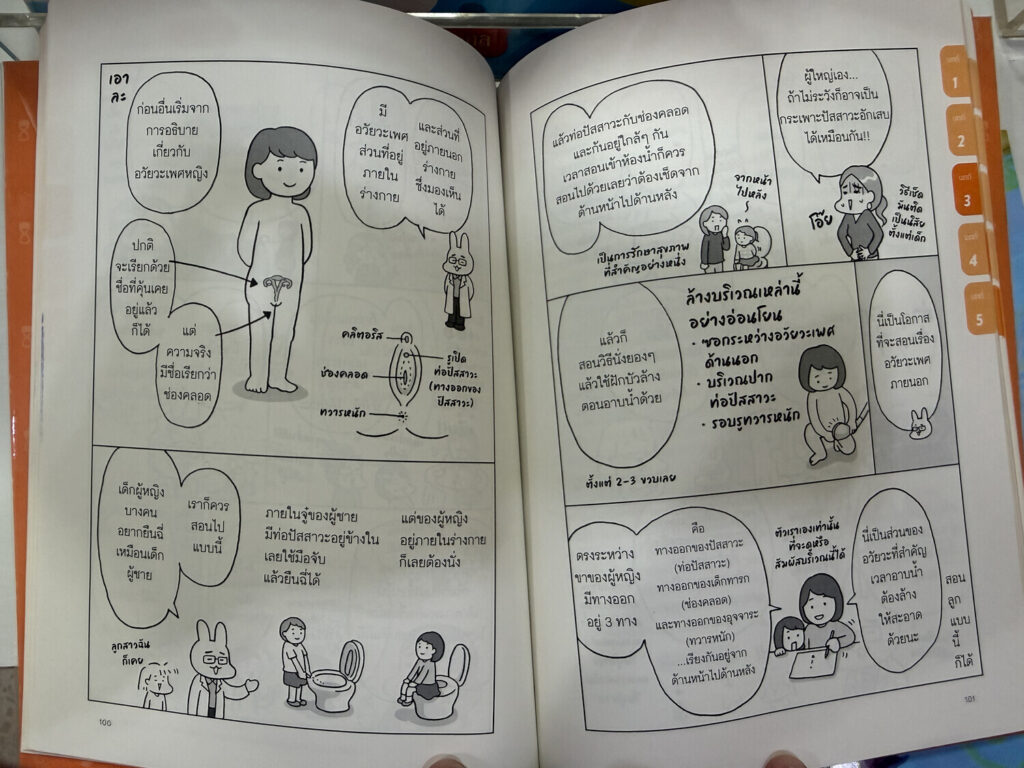 เอา
ละ
ก่อนอื่นเริ่มจาก
การอธิบาย
เกี่ยวกับ
อวัยวะเพศหญิง
มี
อวัยวะเพศ
ส่วนที่อยู่
ภายใน
ร่างกาย
และส่วนที่
อยู่ภายนอก
ร่างกาย
ซึ่งมองเห็น
ได้
ปกติ
จะเรียกด้วย
ชื่อที่คุ้นเคย
อยู่แล้ว
ก็ได้
แต่
ความจริง
มีชื่อเรียกว่า
ช่องคลอด
คลิตอริส
รูเปิด
ท่อปัสสาวะ
(ทางออกของ
ปัสสาวะ)
ช่องคลอด
ทวารหนัก
เด็กผู้หญิง
บางคน
อยากยืนฉี่
เหมือนเด็ก
ผู้ชาย
เราก็ควร
สอนไป
แบบนี้
ภายในจู๋ของผู้ชาย
มีท่อปัสสาวะอยู่ข้างใน
เลยใช้มือจับ
แล้วยืนฉี่ได้
แต่ของผู้หญิง
อยู่ภายในร่างกาย
ก็เลยต้องนั่ง
ลูกสาวฉัน
ก็เคย
100
แล้วท่อปัสสาวะกับช่องคลอด
และก้นอยู่ใกล้ๆ กัน
เวลาสอนเข้าห้องน้ำก็ควร
สอนไปด้วยเลยว่าต้องเช็ดจาก
ด้านหน้าไปด้านหลัง
จากหน้า
ไปหลัง
เป็นการรักษาสุขภาพ
ที่สำคัญอย่างหนึ่ง
ผู้ใหญ่เอง...
ถ้าไม่ระวังก็อาจเป็น
กระเพาะปัสสาวะอักเสบ
ได้เหมือนกัน!!
โอ๊ย
วิธีเช็ด
มันติด
เป็นนิสัย
ตั้งแต่เด็ก
แล้วก็
สอนวิธีนั่งยองๆ
แล้วใช้ฝักบัวล้าง
ตอนอาบน้ำด้วย
ตั้งแต่ 2-3 ขวบเลย
ล้างบริเวณเหล่านี้
อย่างอ่อนโยน
• ซอกระหว่างอวัยวะเพศ
ด้านนอก
• บริเวณปาก
ท่อปัสสาวะ
• รอบรูทวารหนัก
นี่เป็นโอกาส
ที่จะสอนเรื่อง
อวัยวะเพศ
ภายนอก
ตรงระหว่าง
ขาของผู้หญิง
มีทางออก
อยู่ 3 ทาง
คือ
ทางออกของปัสสาวะ
(ท่อปัสสาวะ)
ทางออกของเด็กทารก
(ช่องคลอด)
และทางออกของอุจจาระ
(ทวารหนัก)
...เรียงกันอยู่จาก
ด้านหน้าไปด้านหลัง
ตัวเราเองเท่านั้น
ที่จะดูหรือ
สัมผัสบริเวณนี้ได้
นี่เป็นส่วนของ
อวัยวะที่สำคัญ
เวลาอาบน้ำ
ต้องล้าง
ให้สะอาด
ด้วยนะ
สอน
ลูก
แบบ
นี้
ก็ได้
101
บทที่
1
บทที่
2
บทที่
3
บทที่
4
บทที่
5